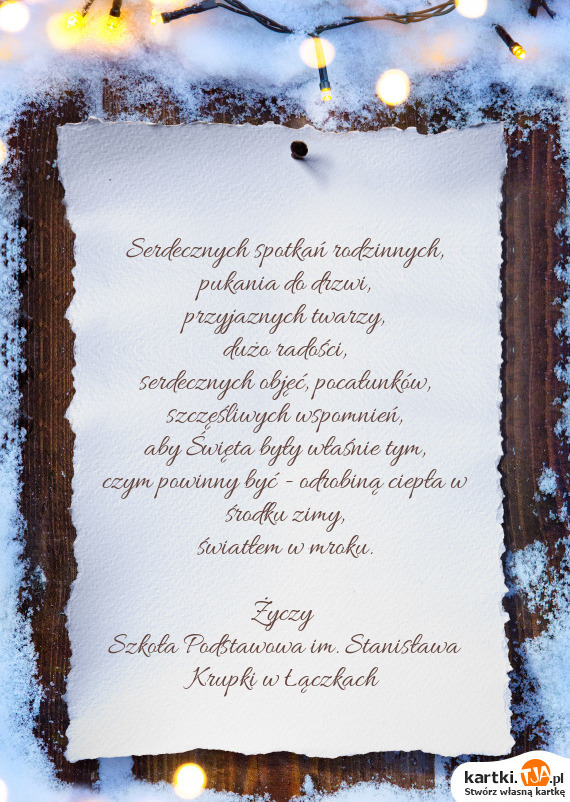 Serdecznych spotkań rodzinnych,
pukania do drzwi,
przyjaznych twarzy,
dużo radości,
serdecznych objęć, pocałunków,
szczęśliwych wspomnień,
aby Święta były właśnie tym,
czym powinny być - odrobiną ciepła w
środku zimy,
światłem w mroku.
Życzy
Szkoła Podstawowa im. Stanisława
Krupki w Łączkach
kartki.TJA.pl
Stwórz własną kartkę